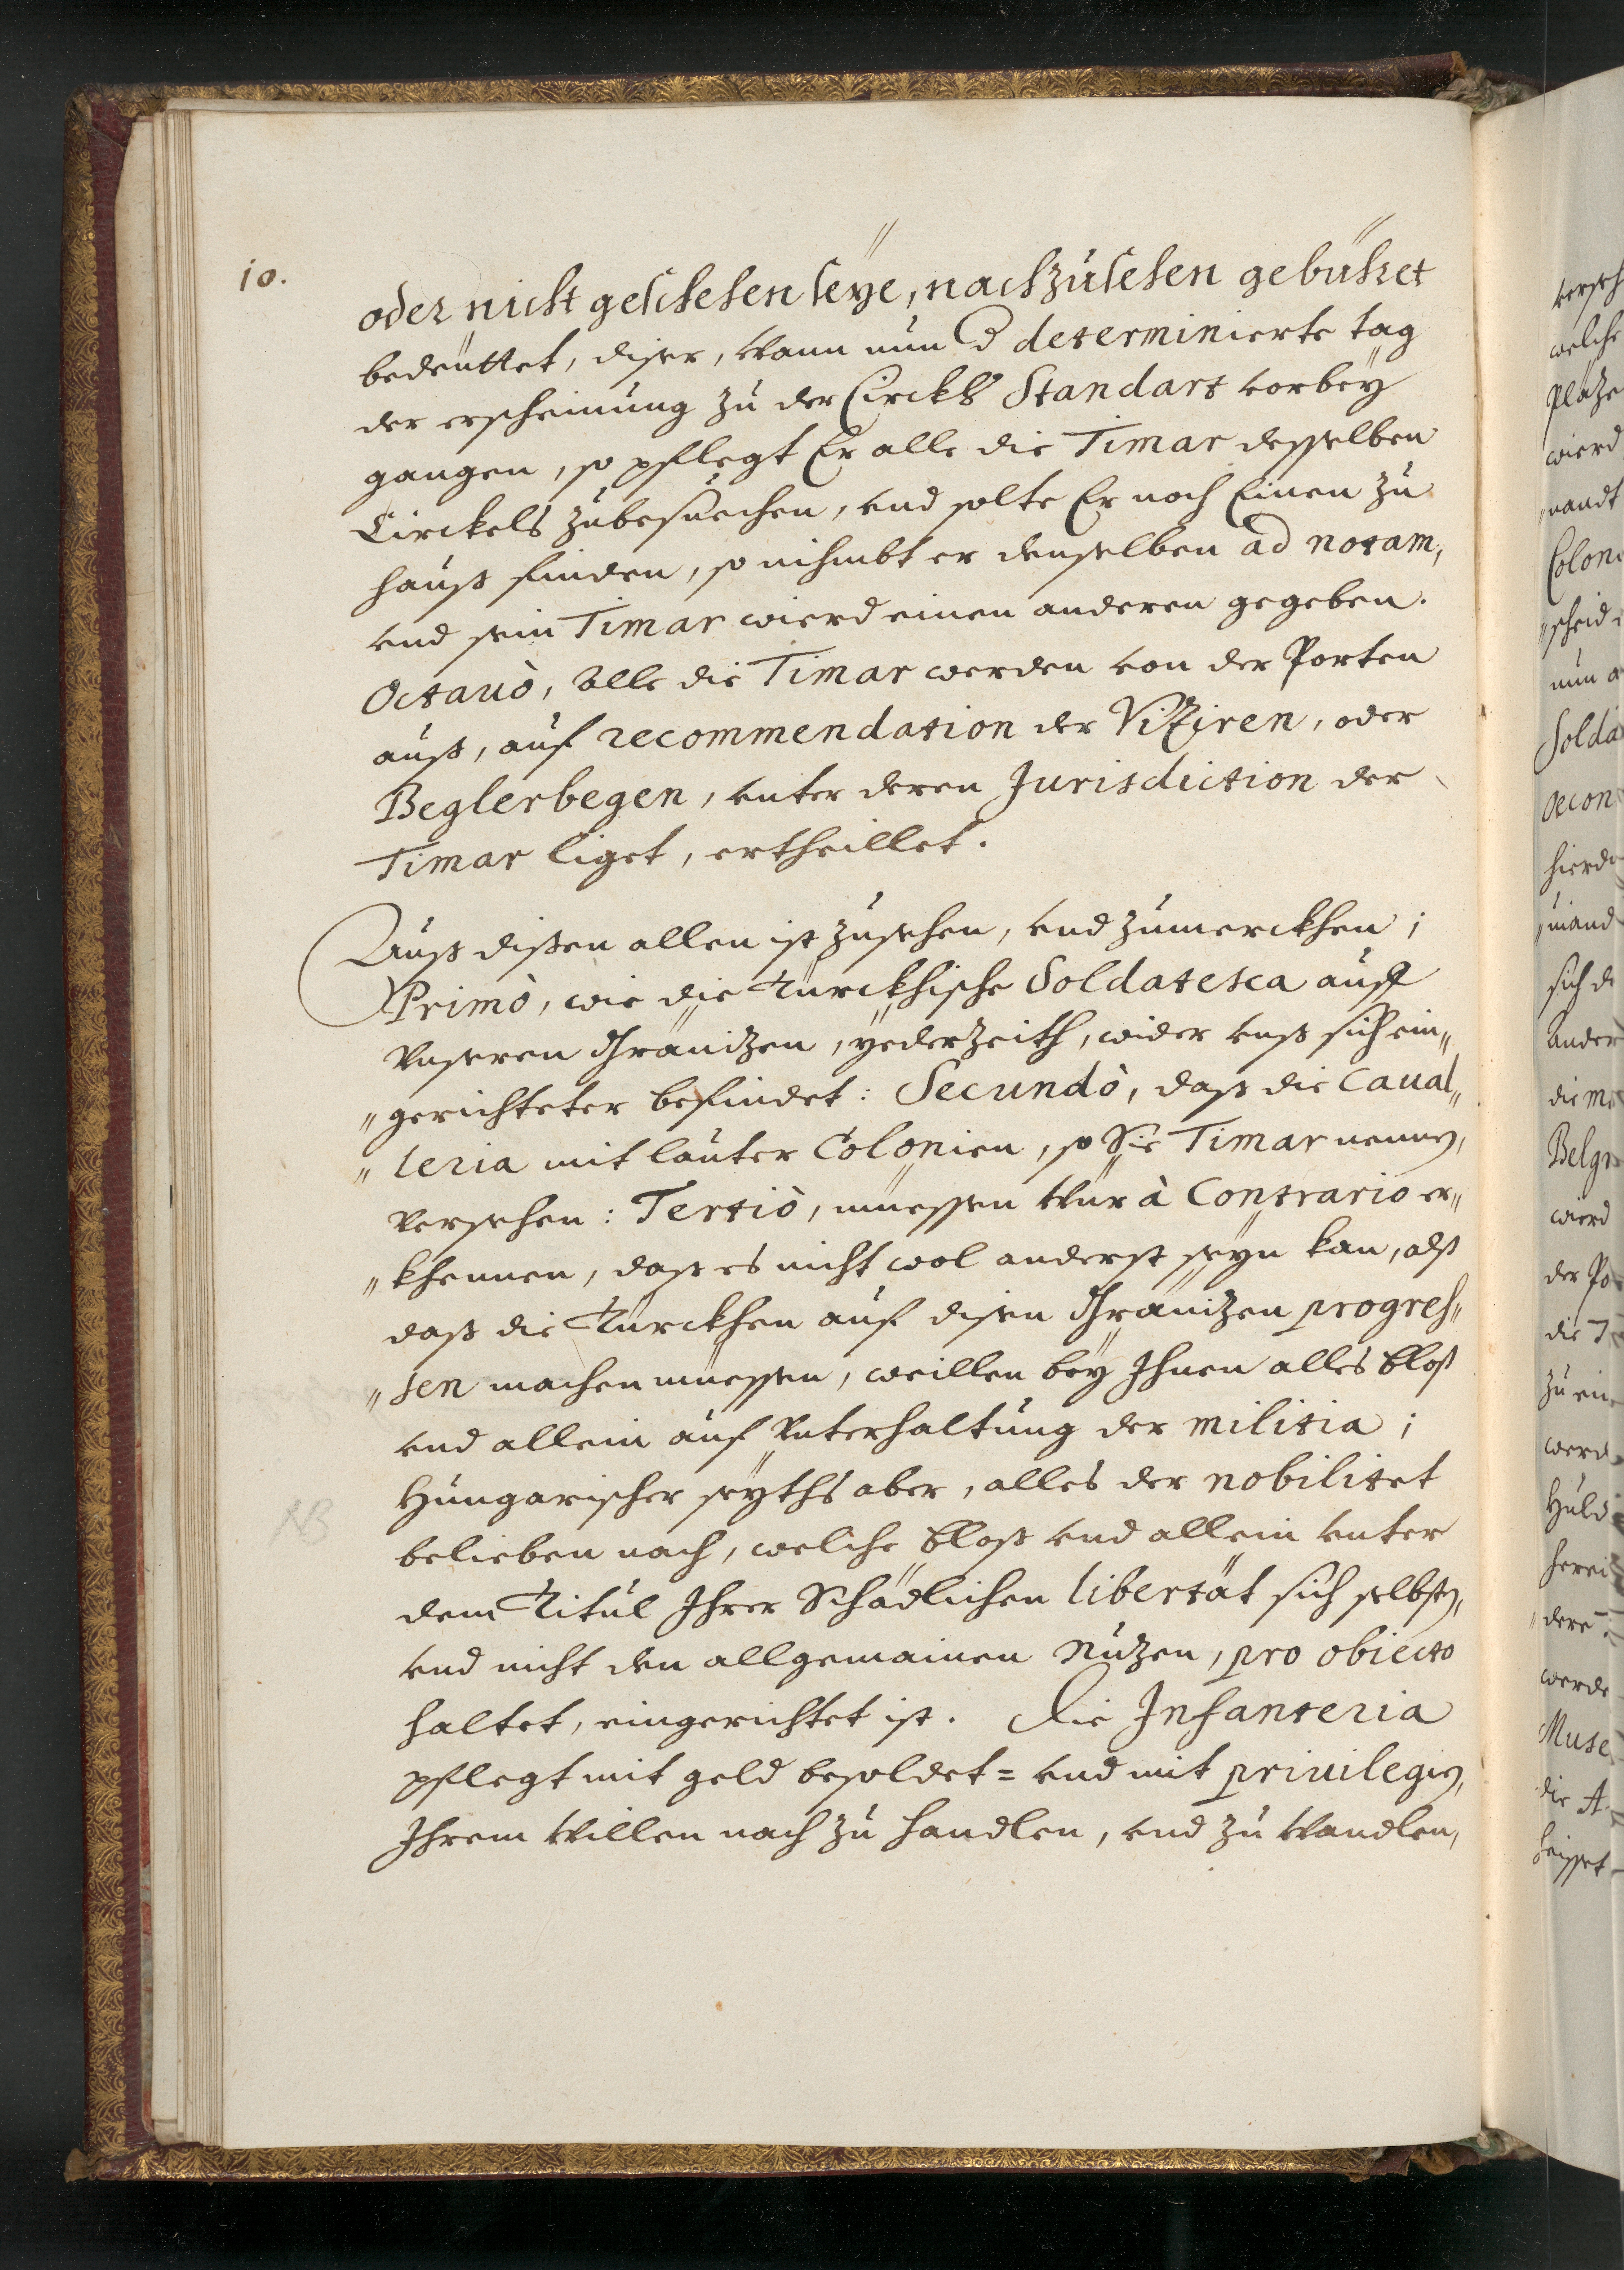 10.
oder nicht geschehen seÿe, nachzúsehen gebühret
bedeüttet, diser, wann nun d determinierte tag
der erscheinúng zú der Circkls Standart vorbeÿ
gangen, so pflegt Er alle die Timar desselben
Circkels zúbesúechen, vnd solte Er noch Einen zú
hauß finden, so nihmbt er denselben ad notam,
vnd sein Timar wierd einen anderen gegeben.
Octauò, Alle die Timar werden von der Porten
auß, auf recommendation der Viziren, oder
Beglerbegen, vnter deren Jurisdiction der
Timar liget, ertheillet.
Auß disen allen ist zúsehen, vnd zúmerckhen;
Primò, wie die Türckhische Soldatesca auff
Vnseren Gränitzen, ÿederzeith, wider vnß sich ein„
„gerichteter befindet: Secundò, daß die Caual„
„leria mit laúter Colonien, so Sie Timar nennen,
versehen: Tertiò, müessen wür à Contrario er„
„khennen, daß es nicht wol anderst seÿn kan, alß
daß die Türckhen auf disen Gränitzen progres„
„sen machen müessen, weillen beÿ Ihnen alles bloß
vnd allein aúf Vnterhaltúng der militia;
Húngarischer seÿths aber, alles der nobilitet
belieben nach, welche bloß vnd allein vnter
dem Titúl Ihrer Schädlichen libertät sich selbsten,
vnd nicht den allgemainen Nutzen, pro obiecto
haltet, eingerichtet ist. Die Infanteria
pflegt mit geld besoldet= vnd mit priuilegien,
Ihrem Willen nach zú handlen, vnd zú Wandlen,
NB
welche
Plätze
wierd
nun
hierd
sich
ander
Belgr
wierd
werd
werde
heisset